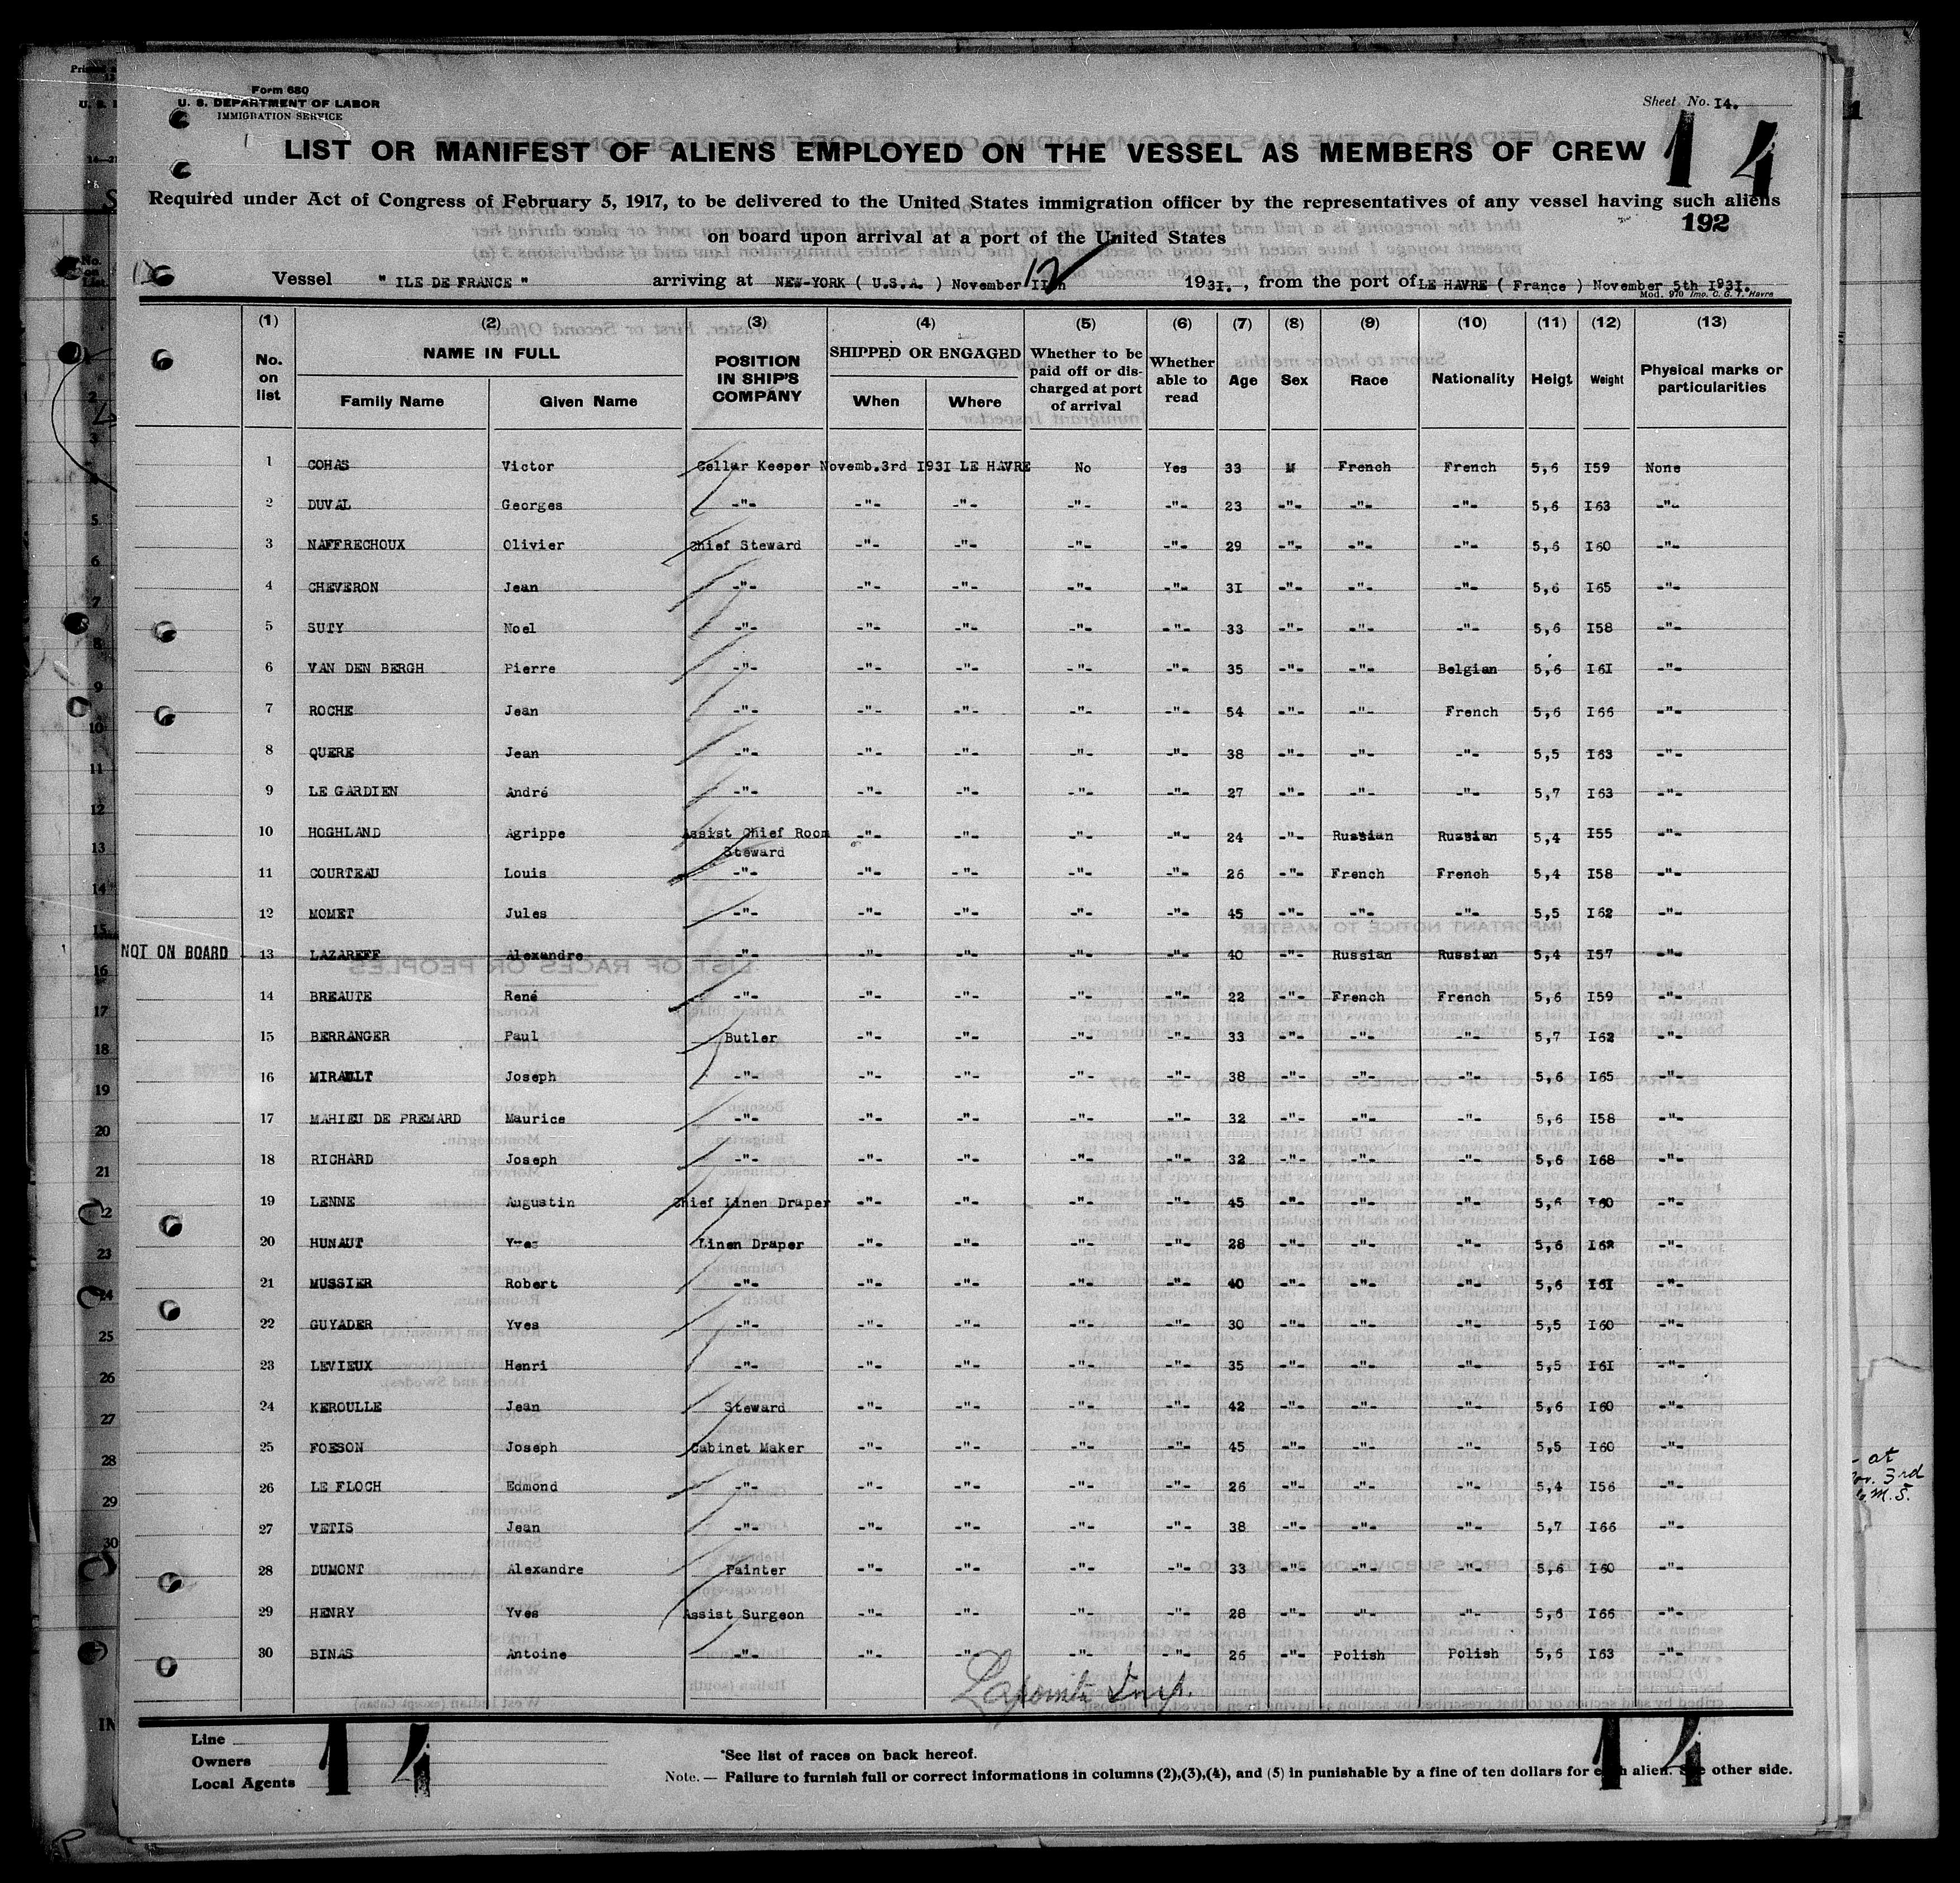 Form 680
U. S. DEPARTMENT OF LABOR
IMMIGRATION SERVICE
Sheet No. I4.
14
LIST OR MANIFEST OF ALIENS EMPLOYED ON THE VESSEL AS MEMBERS OF CREW
Required under Act of Congress of February 5, 1917, to be delivered to the United States immigration officer by the representatives of any vessel having such aliens
192
on board upon arrival at a port of the United States
12
Vessel " ILE DE FRANCE " arriving at NEW-YORK ( U.S.A. ) November IIth 1931. , from the port of LE HAVRE ( France ) November 5th I931.
Mod. 970 Imp. C. G. T. Havre
(1) (2) (3) (4) (5) (6) (7) (8) (9) (10) (11) (12) (13)
No. on list NAME IN FULL Family Name Given Name POSITION IN SHIP'S COMPANY SHIPPED OR ENGAGED When Where Whether to be paid off or discharged at port of arrival Whether able to read Age Sex Race Nationality Heigt Weight Physical marks or particularities
1 COHAS Victor Cellar Keeper Novemb.3rd I93I LE HAVRE No Yes 33 M French French 5,6 I59 None
2 DUVAL Georges -"- -"- -"- -"- -"- 23 -"- -"- -"- 5,6 I63 -"-
3 NAFFRECHOUX Olivier Chief Steward -"- -"- -"- -"- 29 -"- -"- -"- 5,6 I60 -"-
4 CHEVERON Jean -"- -"- -"- -"- -"- 3I -"- -"- -"- 5,6 I65 -"-
5 SUTY Noel -"- -"- -"- -"- -"- 33 -"- -"- -"- 5,6 I58 -"-
6 VAN DEN BERGH Pierre -"- -"- -"- -"- -"- 35 -"- -"- Belgian 5,6 I6I -"-
7 ROCHE Jean -"- -"- -"- -"- -"- 54 -"- -"- French 5,6 I66 -"-
8 QUERE Jean -"- -"- -"- -"- -"- 38 -"- -"- -"- 5,5 I63 -"-
9 LE GARDIEN André -"- -"- -"- -"- -"- 27 -"- -"- -"- 5,7 I63 -"-
10 HOGHLAND Agrippe Assist Chief Room Steward -"- -"- -"- -"- 24 -"- Russian Russian 5,4 I55 -"-
11 COURTEAU Louis -"- -"- -"- -"- -"- 26 -"- French French 5,4 I58 -"-
12 MOMET Jules -"- -"- -"- -"- -"- 45 -"- -"- -"- 5,5 I62 -"-
NOT ON BOARD 13 LAZAREFF Alexandre -"- -"- -"- -"- -"- 40 -"- Russian Russian 5,4 I57 -"-
14 BREAUTE René -"- -"- -"- -"- -"- 22 -"- French French 5,6 I59 -"-
15 BERRANGER Paul Butler -"- -"- -"- -"- 33 -"- -"- -"- 5,7 I62 -"-
16 MIRAULT Joseph -"- -"- -"- -"- -"- 38 -"- -"- -"- 5,6 I65 -"-
17 MAHIEU DE PREMARD Maurice -"- -"- -"- -"- -"- 32 -"- -"- -"- 5,6 I58 -"-
18 RICHARD Joseph -"- -"- -"- -"- -"- 32 -"- -"- -"- 5,6 I68 -"-
19 LENNE Augustin Chief Linen Draper -"- -"- -"- -"- 45 -"- -"- -"- 5,6 I60 -"-
20 HUNAUT Yves Linen Draper -"- -"- -"- -"- 28 -"- -"- -"- 5,6 -"-
21 MUSSIER Robert -"- -"- -"- -"- -"- 40 -"- -"- -"- 5,6 I6I -"-
22 GUYADER Yves -"- -"- -"- -"- -"- 30 -"- -"- -"- 5,5 I60 -"-
23 LEVIEUX Henri -"- -"- -"- -"- -"- 35 -"- -"- -"- 5,5 I6I -"-
24 KEROULLE Jean Steward -"- -"- -"- -"- 42 -"- -"- -"- 5,6 I60 -"-
25 FOESON Joseph Cabinet Maker -"- -"- -"- -"- 45 -"- -"- -"- 5,5 I60 -"-
26 LE FLOCH Edmond -"- -"- -"- -"- -"- 26 -"- -"- -"- 5,4 I56 -"-
27 VETIS Jean -"- -"- -"- -"- -"- 38 -"- -"- -"- 5,7 I66 -"-
28 DUMONT Alexandre Painter -"- -"- -"- -"- 33 -"- -"- -"- 5,6 I60 -"-
29 HENRY Yves Assist Surgeon -"- -"- -"- -"- 28 -"- -"- -"- 5,6 I66 -"-
30 BINAS Antoine -"- -"- -"- -"- -"- 26 -"- Polish Polish 5,6 I63 -"-
at
3rd
M.S.
Line
Owners
Local Agents
14
*See list of races on back hereof.
Note. — Failure to furnish full or correct informations in columns (2),(3),(4), and (5) in punishable by a fine of ten dollars for each alien. See other side.
14